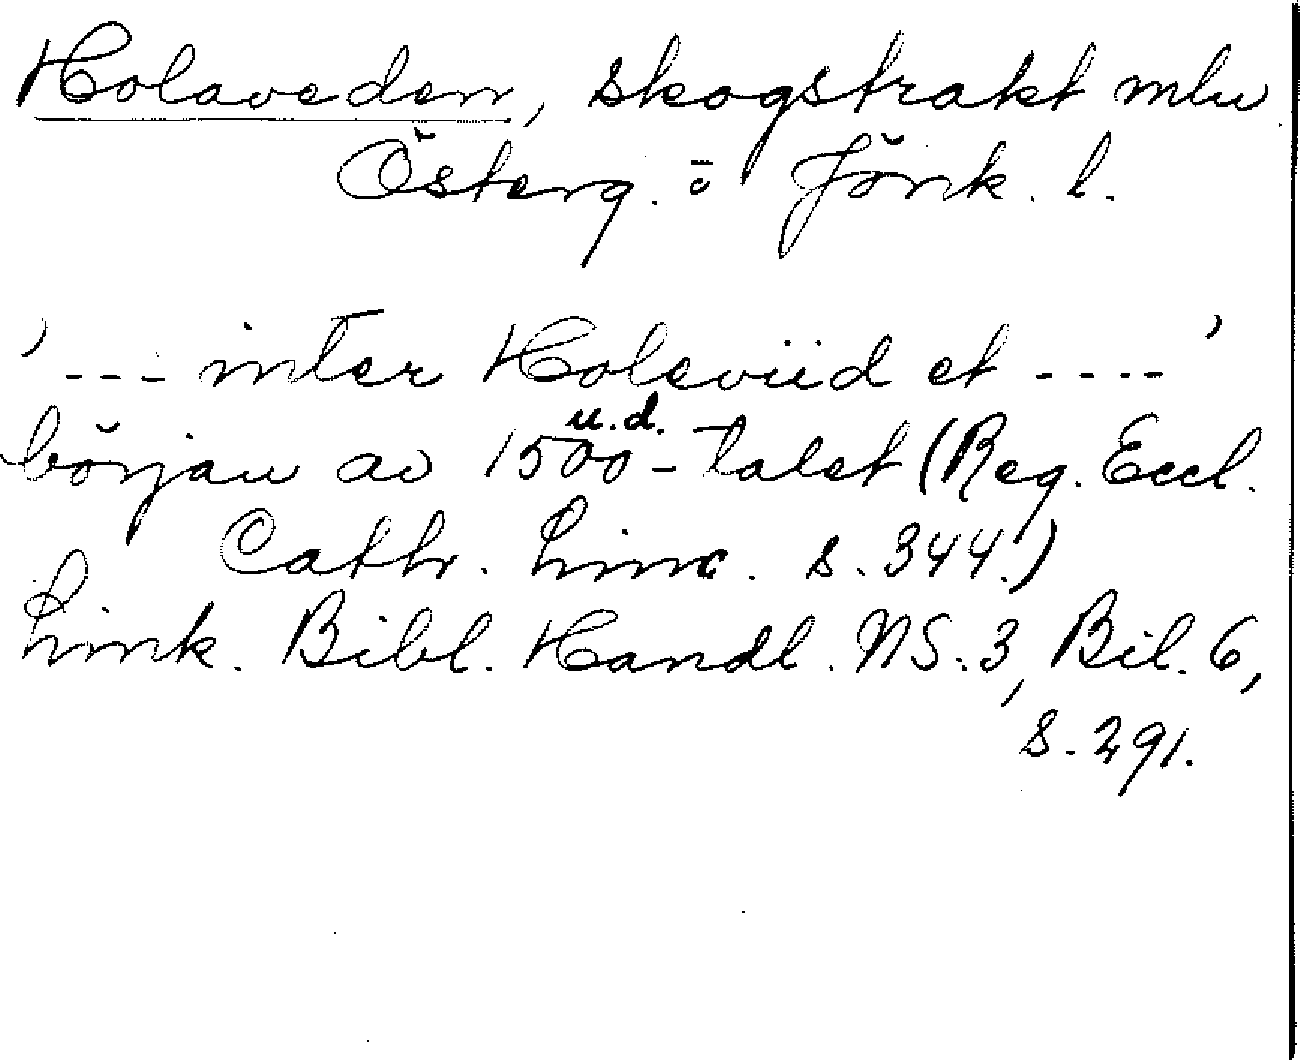 Holaveden, skogstrakt mlw
Österg. o Jönk. l.
' --- inter Holeviid et ---- '
u.d.
början av 1500-talet (Reg. Eccl.
Cath. Linc. s. 344.)
Link. Bibl. Handl. NS. 3, Bil. 6,
s. 291.